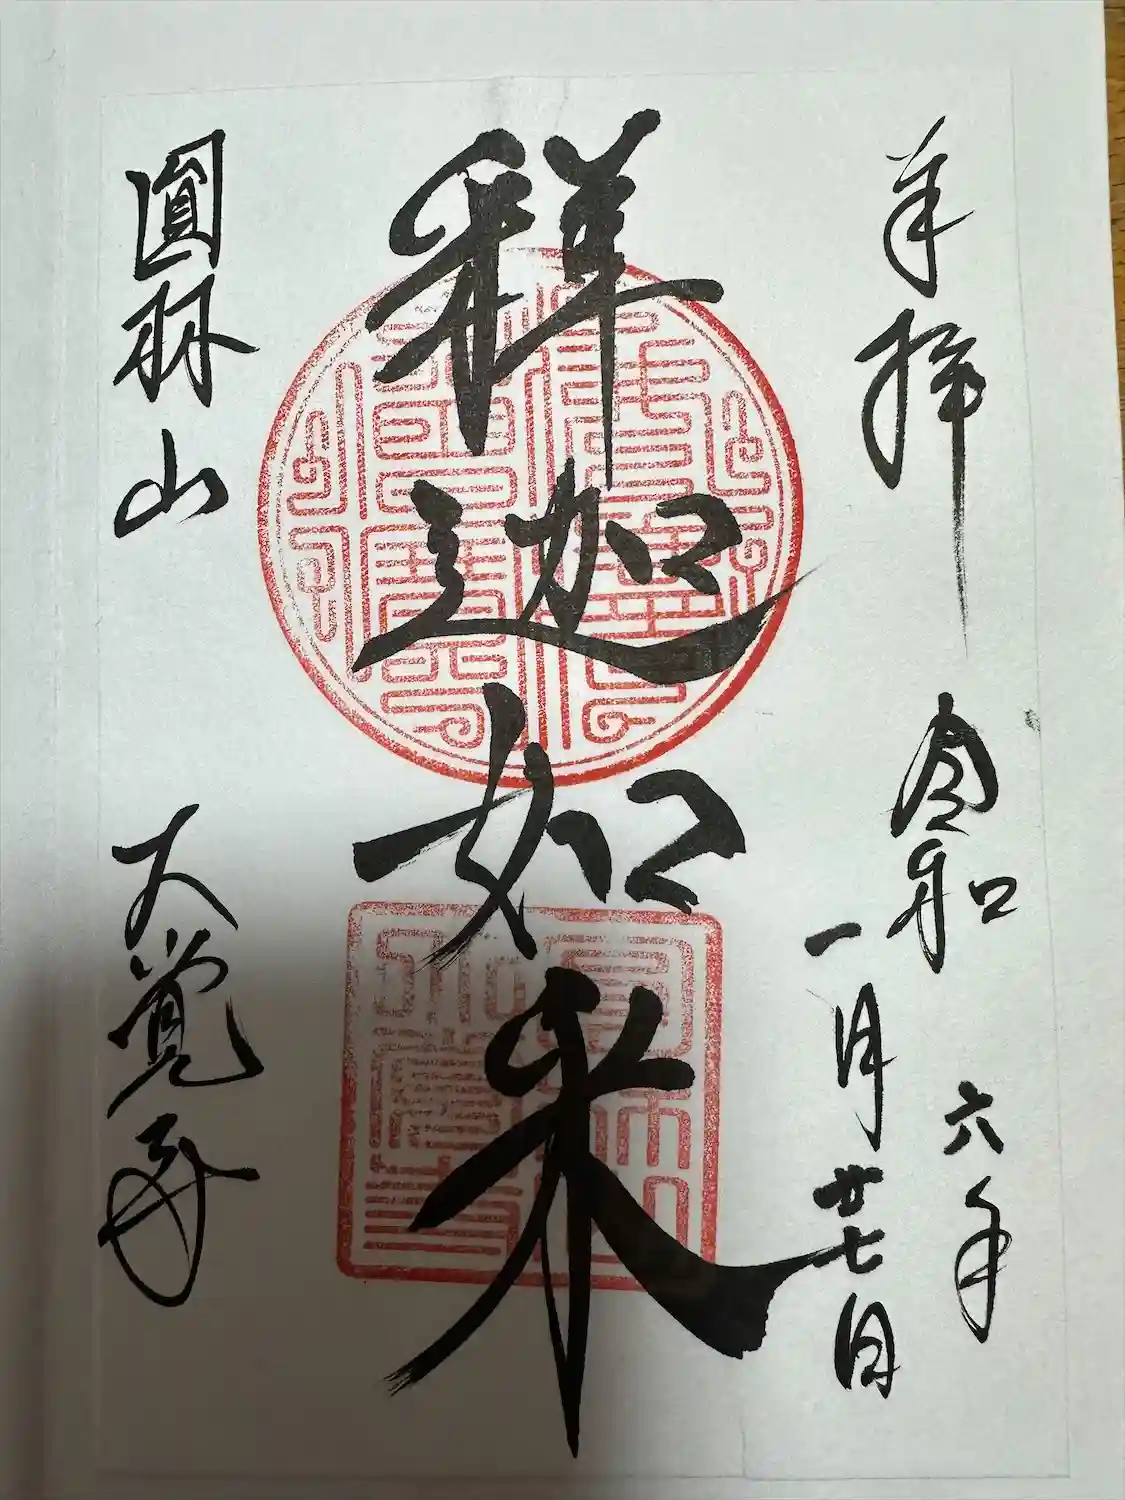 奉拝
令和六年
一月廿七日
釋迦如来
圓林山
大覺寺